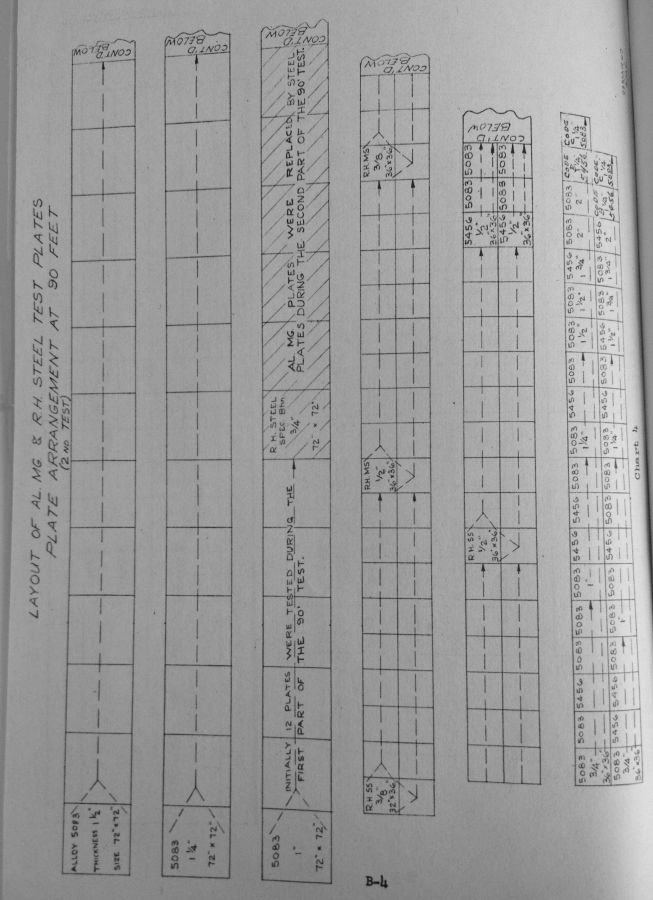 LAYOUT OF AL MG & R.H. STEEL TEST PLATES
PLATE ARRANGEMENT AT 90 FEET
(2 NO TEST)
ALLOY 5083
THICKNESS 1 1/2"
SIZE 72"x72"
CONT'D
BELOW
5083
1 1/4"
72"x72"
CONT'D
BELOW
5083
1"
72"x72"
INITIALLY 12 PLATES WERE TESTED DURING THE
FIRST PART OF THE 90' TEST.
R.H. STEEL
3/4"
72" x 72"
AL MG PLATES WERE REPLACED BY STEEL
PLATES DURING THE SECOND PART OF THE 90' TEST.
CONT'D
BELOW
R.H SS
3/8
R.H MS
1/2"
36"x36"
R.H MS
3/8"
36"x36"
CONT'D
BELOW
R.H. SS
1/2"
36"x36"
5456 5083 5083
1/2"
36"x36"
5456 5083 5083
1/2"
36"x36"
CONT'D
BELOW
5083 5083 5456 5083 5083 5083 5456 5083 5456 5083 5456 5083 5083 5083 5456 5083 5083
3/4" 1" 1 1/4" 1 1/2" 1 1/2" 1 3/4" 2" 2"
36"x36"
5083 5083 5456 5083 5083 5083 5456 5083 5083 5083 5456 5083 5456 5083 5083 5456
3/4" 1" 1 1/4" 1 1/2" 1 3/4" 2"
36"x36"
Chart 4
B-4